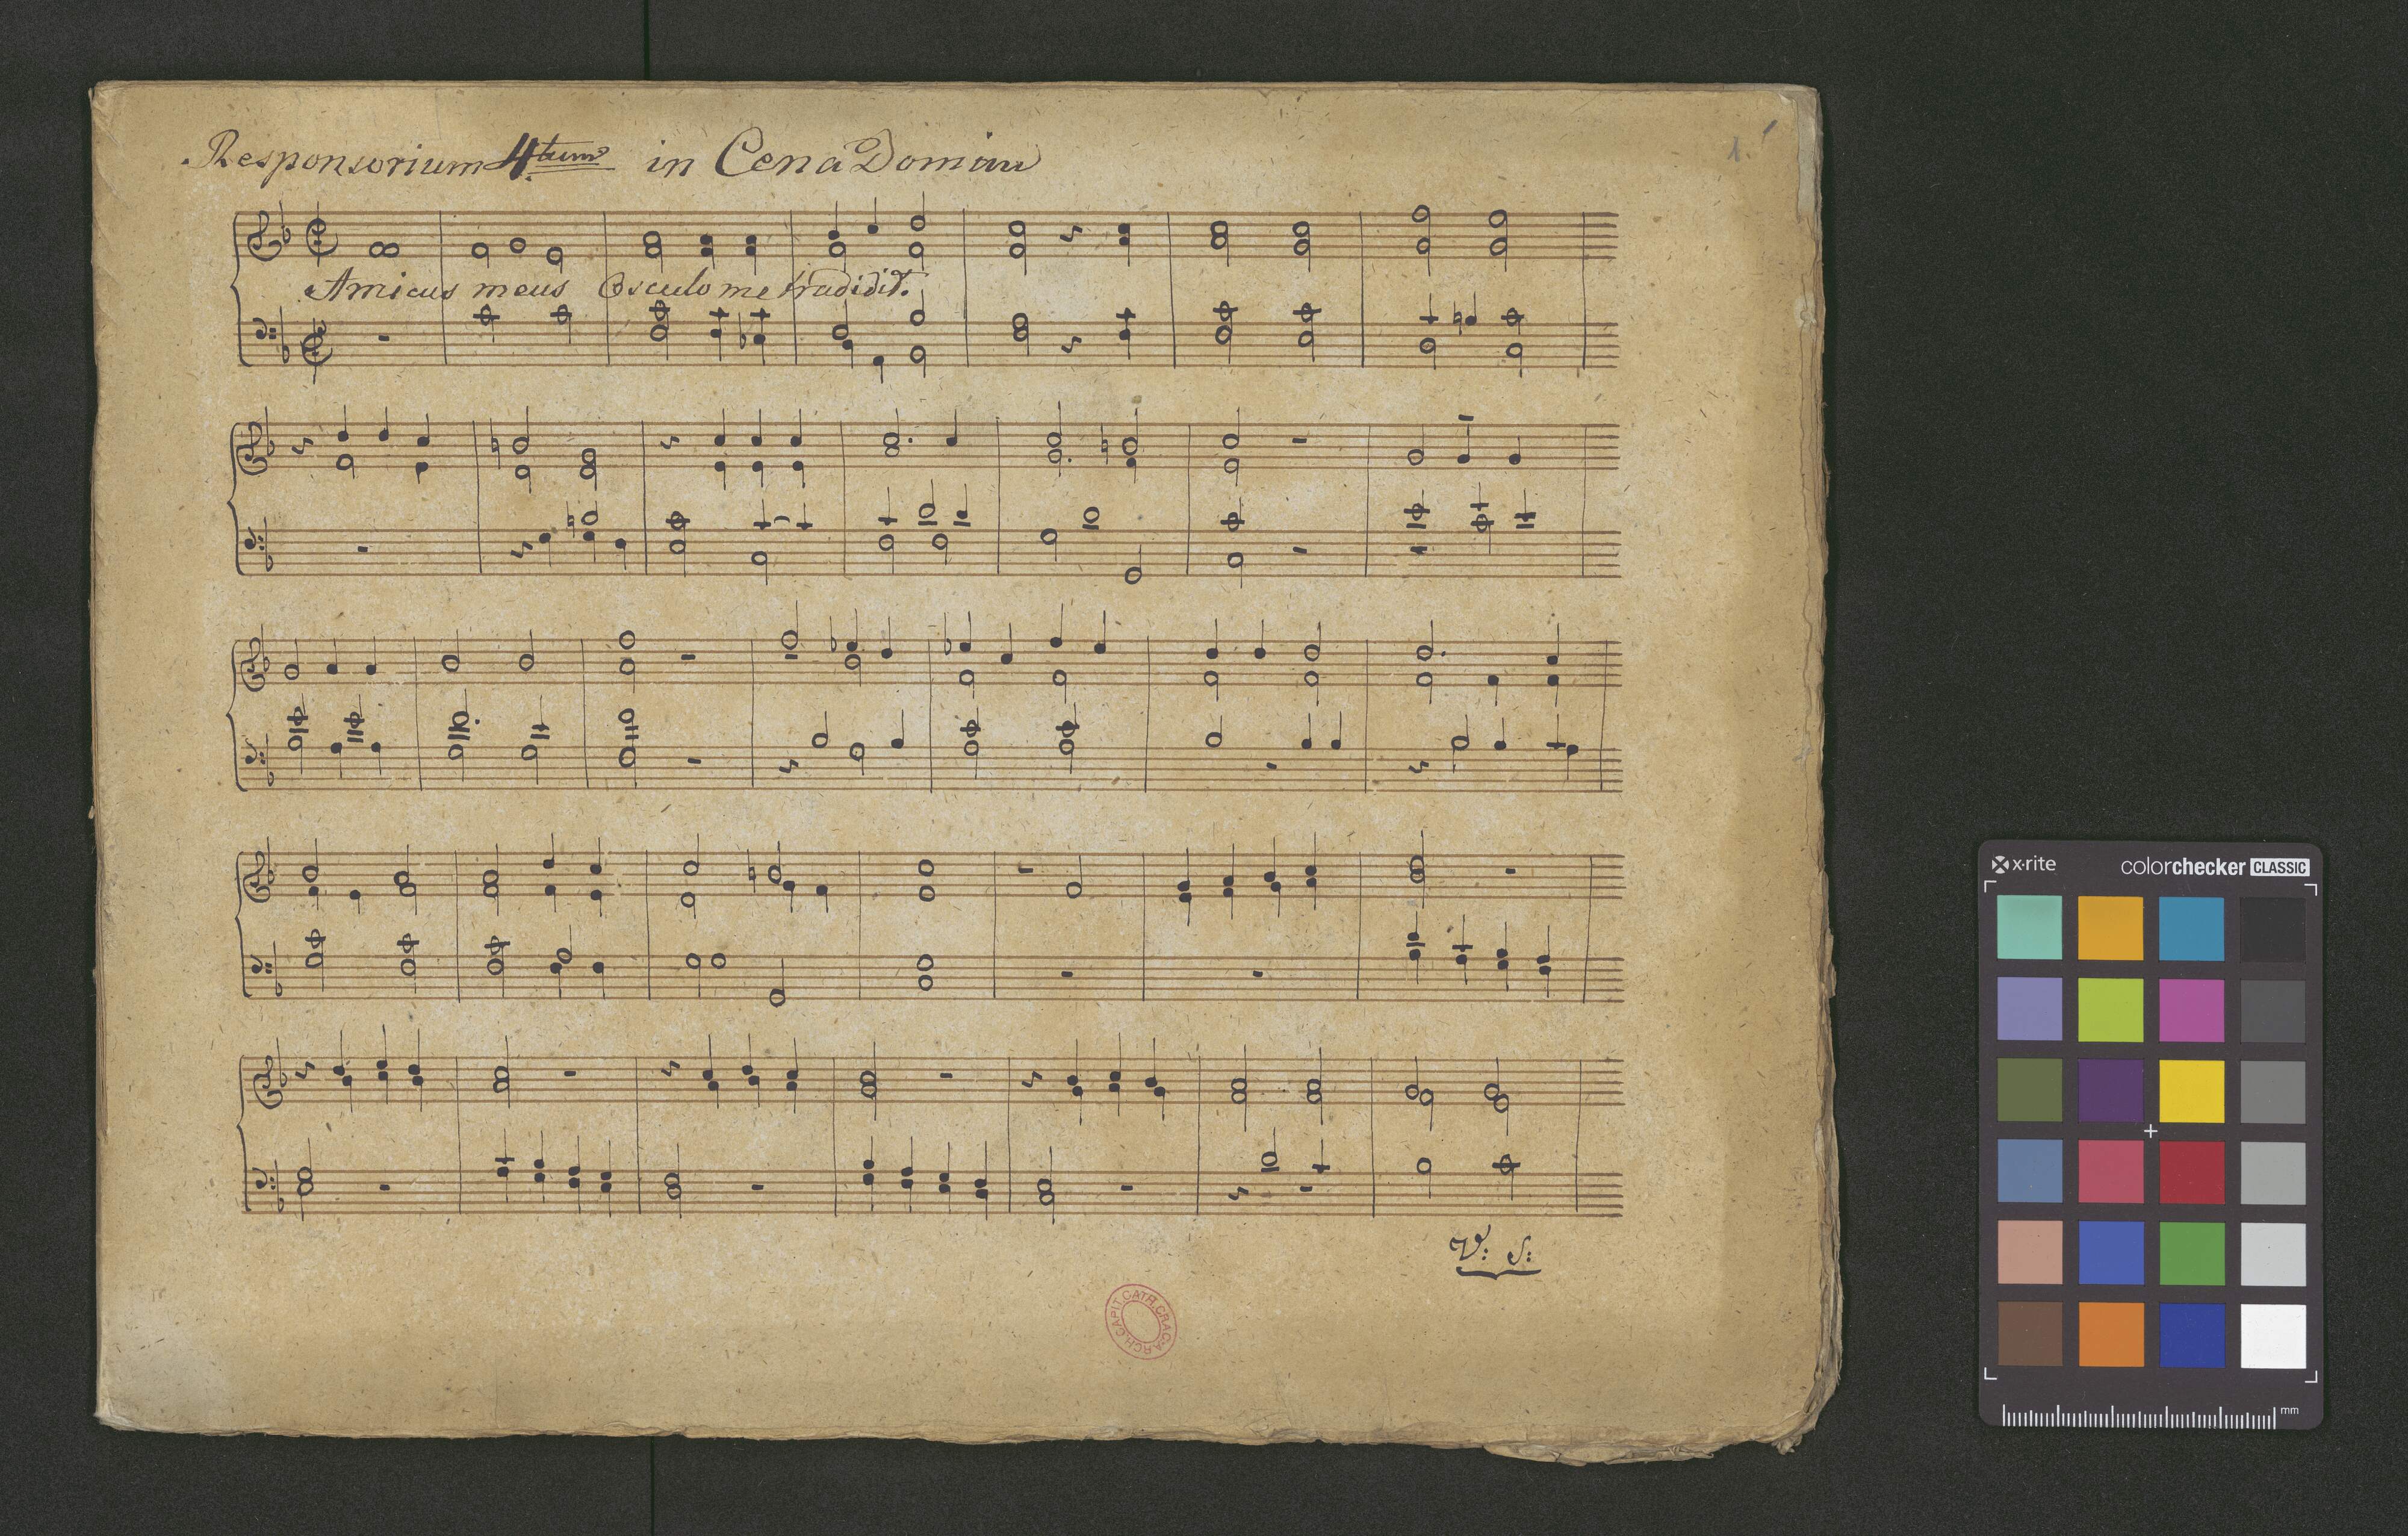 Responsorium 4tum in Cena Domini
1
Amicus meus Osculo me tradidit.
V: S:
ARCH. CAPIT. CATH. CRAC.
x·rite
colorchecker CLASSIC
mm